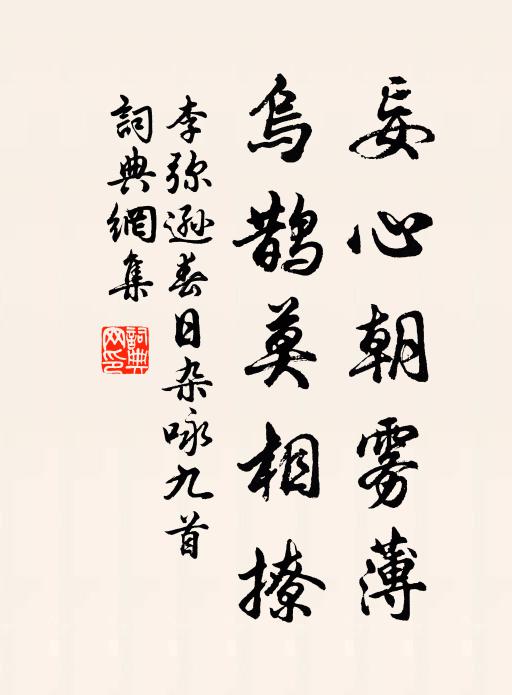 妄心朝雾薄
乌鹊莫相撩
李弥逊春日杂咏九首
词典網集
詞典网印